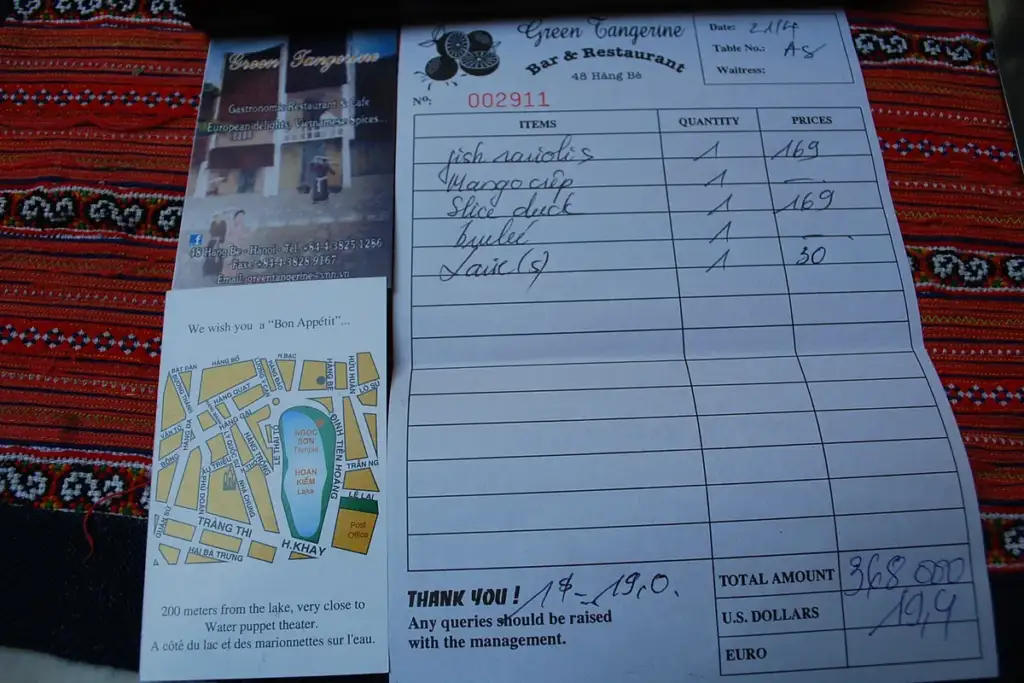 Green Tangerine
Gastronomic Restaurant & Cafe
European delights, Vietnamese Spices...
48 Hang Be - Hanoi - Tel: +84-4-3825 1286
Fax: +84-4-3828 9167
Email: greentangerine@vnn.vn
We wish you a "Bon Appétit"...
BÁT ĐÀN
HÀNG BỒ
H.BẠC
HÀNG ĐÀO
HÀNG BÈ
HỮU HUÂN
LÒ SŨ
HÀNG QUẠT
HÀNG GAI
HÀNG TRỐNG
LÝ QUỐC SƯ
LÊ THÁI TỔ
NGỌC
SƠN
Temple
HOÀN
KIẾM
Lake
ĐINH TIÊN HOÀNG
NHÀ CHUNG
PHỦ DOÃN
QUÁN SỨ
LÊ LAI
Post
Office
TRÀNG THI
H.KHAY
HAI BÀ TRƯNG
200 meters from the lake, very close to
Water puppet theater.
A côté du lac et des marionnettes sur l'eau.
Green Tangerine
Bar & Restaurant
48 Hàng Bè
Date: 21/4
Table No.: A8
Waitress:
Nº: 002911
ITEMS QUANTITY PRICES
fish raviolis 1 169
Mango crêp 1 —
Slice duck 1 169
brulee 1 —
Lavie (s) 1 30
THANK YOU! 1$ = 19,0.
Any queries should be raised
with the management.
TOTAL AMOUNT 368 000
U.S. DOLLARS 19,4
EURO